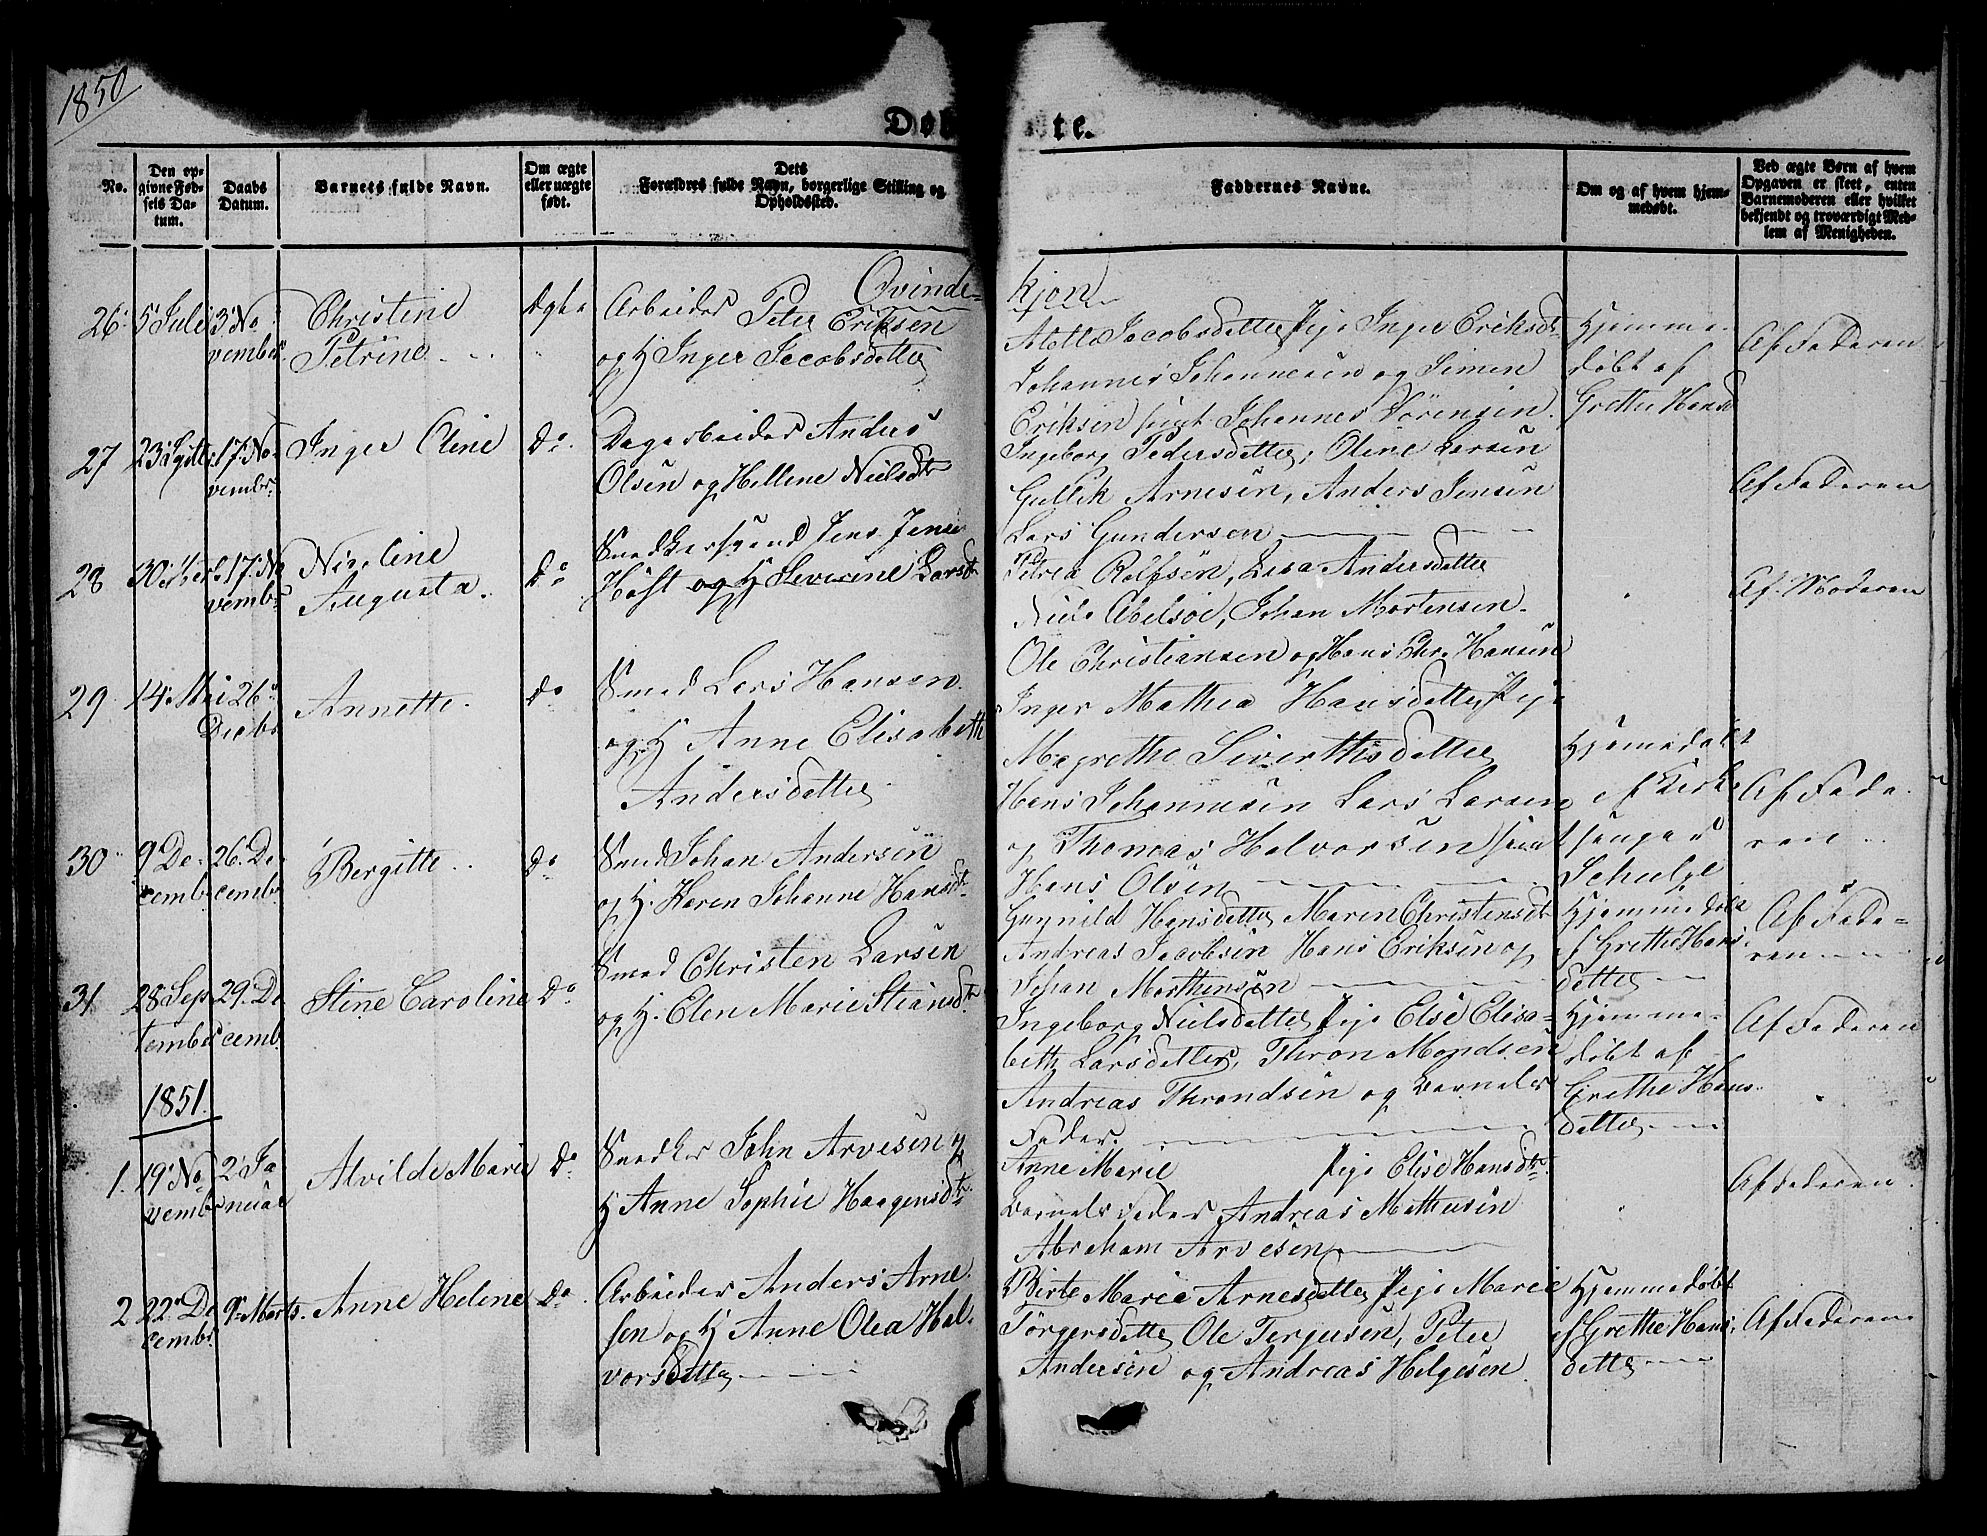 1850
Døbte.
No.
Den op-
givne Fød-
sels Da-
tum.
Daabs
Datum.
Barnets fulde Navn.
Om ægte
eller uægte
født.
Dets
Forældres fulde Navn, borgerlige Stilling og
Opholdssted.
Faddernes Navne.
Om og af hvem hjem-
medøbt.
Ved ægte Børn af hvem
Opgaven er skeet, enten
Barnemoderen eller hvilket
bekjendt og troværdigt Med-
lem af Menigheden.
Qvinde-
kjøn
26
5 Juli
3 No
vember
Christine
Petrine
Ægte
Arbeider Peter Eriksen
og H Inger Jacobsdatter
Jacobsdatter Pige Inger Eriksdt.
Johannes Johannesen og Simen
Eriksen samt Johannes Sørensen.
Hjemme-
døbt af
Grethe Hansd
Af Faderen
27
23
17 No-
vembr.
Inger Oline
Do.
Dagarbeider Anders
Olsen og Hellene Nielsdtr
Ingeborg Pedersdatter, Oline Larsen
Gullik Arnesen, Anders Jensen
Lars Gundersen
Af Faderen
28
30
17 No
vembr
Nicoline
Augusta.
Do
Snedkersvend Jens Jensen
Høst og H Severine Larsdtr
Petrea Rolfsen, Lisa Andersdatter
Niels Abelsøe, Johan Mortensen
Ole Christiansen og Hans Chr. Hansen
Af Moderen
29
14 Mai
26
Decbr
Annette.
Do
Smed Lars Hansen
og H Anne Elisabeth
Andersdatter
Inger Mathea Hansdatter, Pige
Magrethe Siverthsdatter
Hans Johannesen Lars Larsen
og Thomas Halvorsen samt
Hans Olsen
Hjemedøbt
af Kirke
sanger
Schulze
Af Fade-
ren
30
9 De-
cembr
26. De-
cembr
Bergitte
Do
Smed Johan Andersen
og H. Karen Johanne Hansdtr
Gunnild Hansdatter Maren Christensdtr
Andreas Jacobsen Hans Eriksen og
Johan Morthensen
Hjemmedøbt
af Grethe Hans
datter
Af Fade-
ren
31
28 Sep
tember
29. De
cemb.
Stine Caroline
Do
Smed Christen Larsen
og H. Elen Marie Stiansdtr
Ingeborg Nielsdatter Pige Else Elisa-
beth Larsdatter, Thron Mondsen
Andreas Throndsen og Barnets
Fader.
Hjemme-
døbt af
Grethe Hans
datter
Af Faderen
1851.
1.
19 No
vembr
2 Ja
nuar
Alvilde Marie
Do
Snedker John Arvesen og
H Anne Sophie Haagensdtr
Anne Marie Pige Elise Hansdtr.
Barnets Fader Andreas Mathesen
Abraham Arvesen
Af Faderen.
2
22 De
cembr.
9 Marts.
Anne Helene
Do
Arbeider Anders Arne-
sen og H Anne Olea Hal-
vorsdatter
Birte Marie Arnesdatter Pige Marie
Torgersdatter Ole Terjesen, Peter
Andersen og Andreas Helgesen
Hjemmedøbt
af Grethe Hans-
datter
Af Faderen